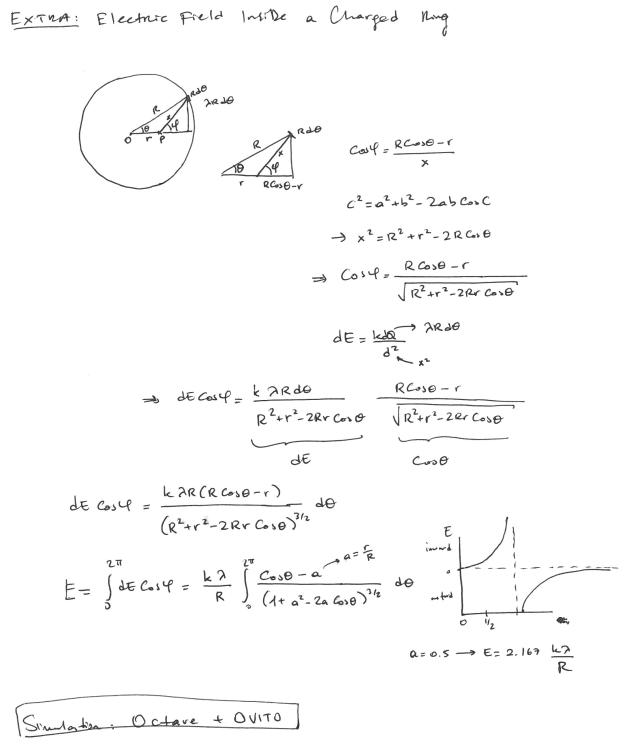 EXTRA: Electric Field Inside a Charged Ring
Rdθ
λRdθ
R
x
θ
φ
O
r
P
Rdθ
R
x
θ
φ
r
RCosθ-r
Cosφ = (RCosθ - r) / x
c² = a² + b² - 2ab CosC
→ x² = R² + r² - 2R Cosθ
⇒ Cosφ = (R Cosθ - r) / √(R² + r² - 2Rr Cosθ)
dE = kdQ / d² → λRdθ
x²
⇒ dE Cosφ = k λR dθ / (R² + r² - 2Rr Cosθ) (RCosθ - r) / √(R² + r² - 2Rr Cosθ)
dE Cosθ
dE Cosφ = k λR (R Cosθ - r) / (R² + r² - 2Rr Cosθ)^3/2 dθ
E = ∫₀^2π dE Cosφ = kλ / R ∫₀^2π (Cosθ - a) / (1 + a² - 2a Cosθ)^3/2 dθ → a = r/R
E
inward
0
0 1/2
a = 0.5 → E = 2.167 kλ / R
Simulation: Octave + OVITO